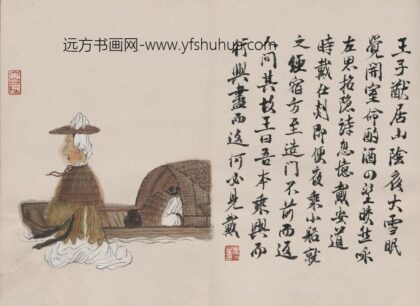 远方书画网-www.yfshuhua.com
王子猷居山陰夜大雪眠
覺開室命酌酒四望皎然咏
左思招隐詩忽憶戴安道
時戴在剡即便夜乘小船就
之經宿方至造門不前而返
人问其故王曰吾本乘興而
行興盡而返何必見戴